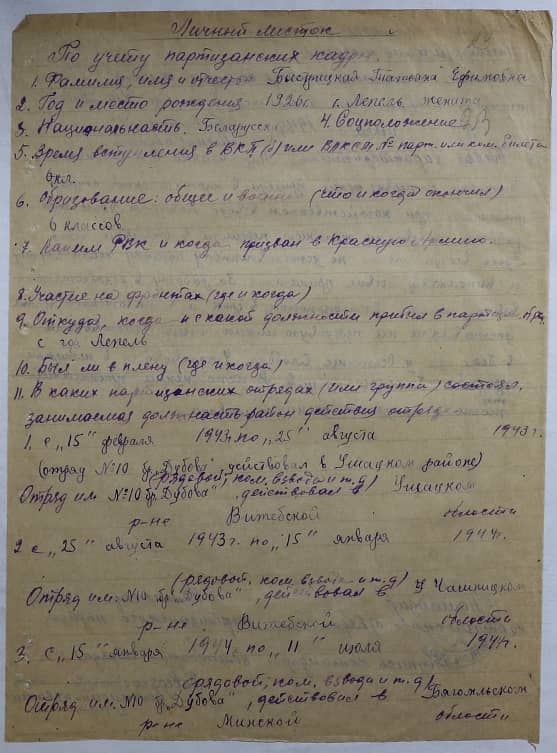 Личный листок
По учету партизанских кадров
1. Фамилия, имя и отчество Ефимовна
2. Год и место рождения 1926 г. г. Лепель, женщина
3. Национальность. Беларусс 4. Соцположение
5. Время вступления в ВКП(б) или ВЛКСМ, № парт. или ком. билета
6. Образование: общее и военное (что и когда окончил)
6 классов
7. Каким РВК и когда призван в Красную Армию.
8. Участие на фронтах (где и когда)
9. Откуда, когда и с какой должности прибыл в партизан. отряд
с гор Лепель
10. Был ли в плену (где и когда)
11. В каких партизанских отрядах (или группа) состоял,
занимаемая должность район действия отряда
1. с „15“ февраля 1943 г. по „25“ августа 1943 г.
(отряд №10 бр. Дубова действовал в Ушацком районе)
(рядовой, ком. взвода и т.д)
Отряд им. №10 бр. Дубова“, действовал в Ушацком
р-не Витебской области
2 с „25“ августа 1943 г. по „15“ января 1944 г.
(рядовой. ком. взвода и т.д)
Отряд им. №10 бр. „Дубова“, действовал в Чашницком
р-не Витебской области
3. с „15“ января 1944 по „11“ июля 1944 г.
(рядовой, ком. взвода и т.д)
Отряд им. №10 бр. „Дубова“, действовал в Бягомльском
р-не Минской области